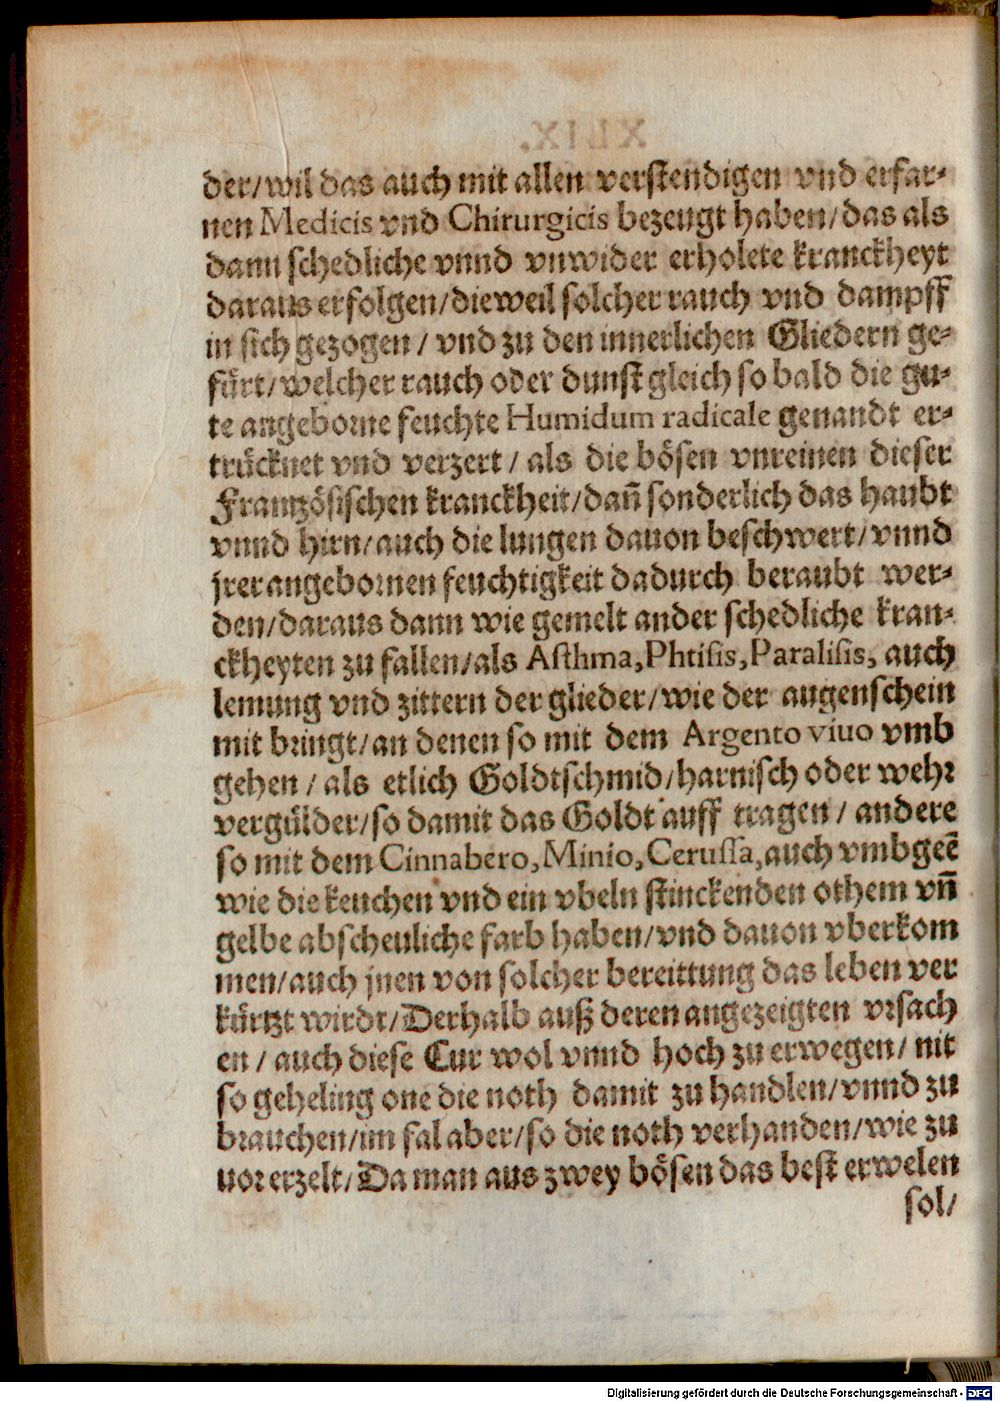 der/wil das auch mit allen verstendigen vnd erfar-
nen Medicis vnd Chirurgicis bezeugt haben/das als
dann schedliche vnnd vnwider erholete kranckheyt
daraus erfolgen/dieweil solcher rauch vnd dampff
in sich gezogen / vnd zu den innerlichen Gliedern ge-
fürt/welcher rauch oder dunst gleich so bald die gu-
te angeborne feuchte Humidum radicale genandt er-
trücknet vnd verzert / als die bösen vnreinen dieser
Frantzösischen kranckheit/dañ sonderlich das haubt
vnnd hirn/auch die lungen dauon beschwert/vnnd
jrer angebornen feuchtigkeit dadurch beraubt wer-
den/daraus dann wie gemelt ander schedliche kran-
ckheyten zu fallen/als Asthma,Phtisis,Paralisis, auch
lemung vnd zittern der glieder/wie der augenschein
mit bringt/an denen so mit dem Argento viuo vmb
gehen / als etlich Goldtschmid/harnisch oder wehr
vergülder/so damit das Goldt auff tragen / andere
so mit dem Cinnabero,Minio,Cerussa,auch vmbgeē
wie die keuchen vnd ein vbeln stinckenden othem vñ
gelbe abscheuliche farb haben/vnd dauon vberkom
men/auch jnen von solcher bereittung das leben ver
kürtzt wirdt/Derhalb auß deren angezeigten vrsach
en / auch diese Cur wol vnnd hoch zu erwegen/ nit
so geheling one die noth damit zu handlen/vnnd zu
brauchen/im fal aber/so die noth verhanden/wie zu
uor erzelt/Da man aus zwey bösen das best erwelen
sol/
Digitalisierung gefördert durch die Deutsche Forschungsgemeinschaft - DFG